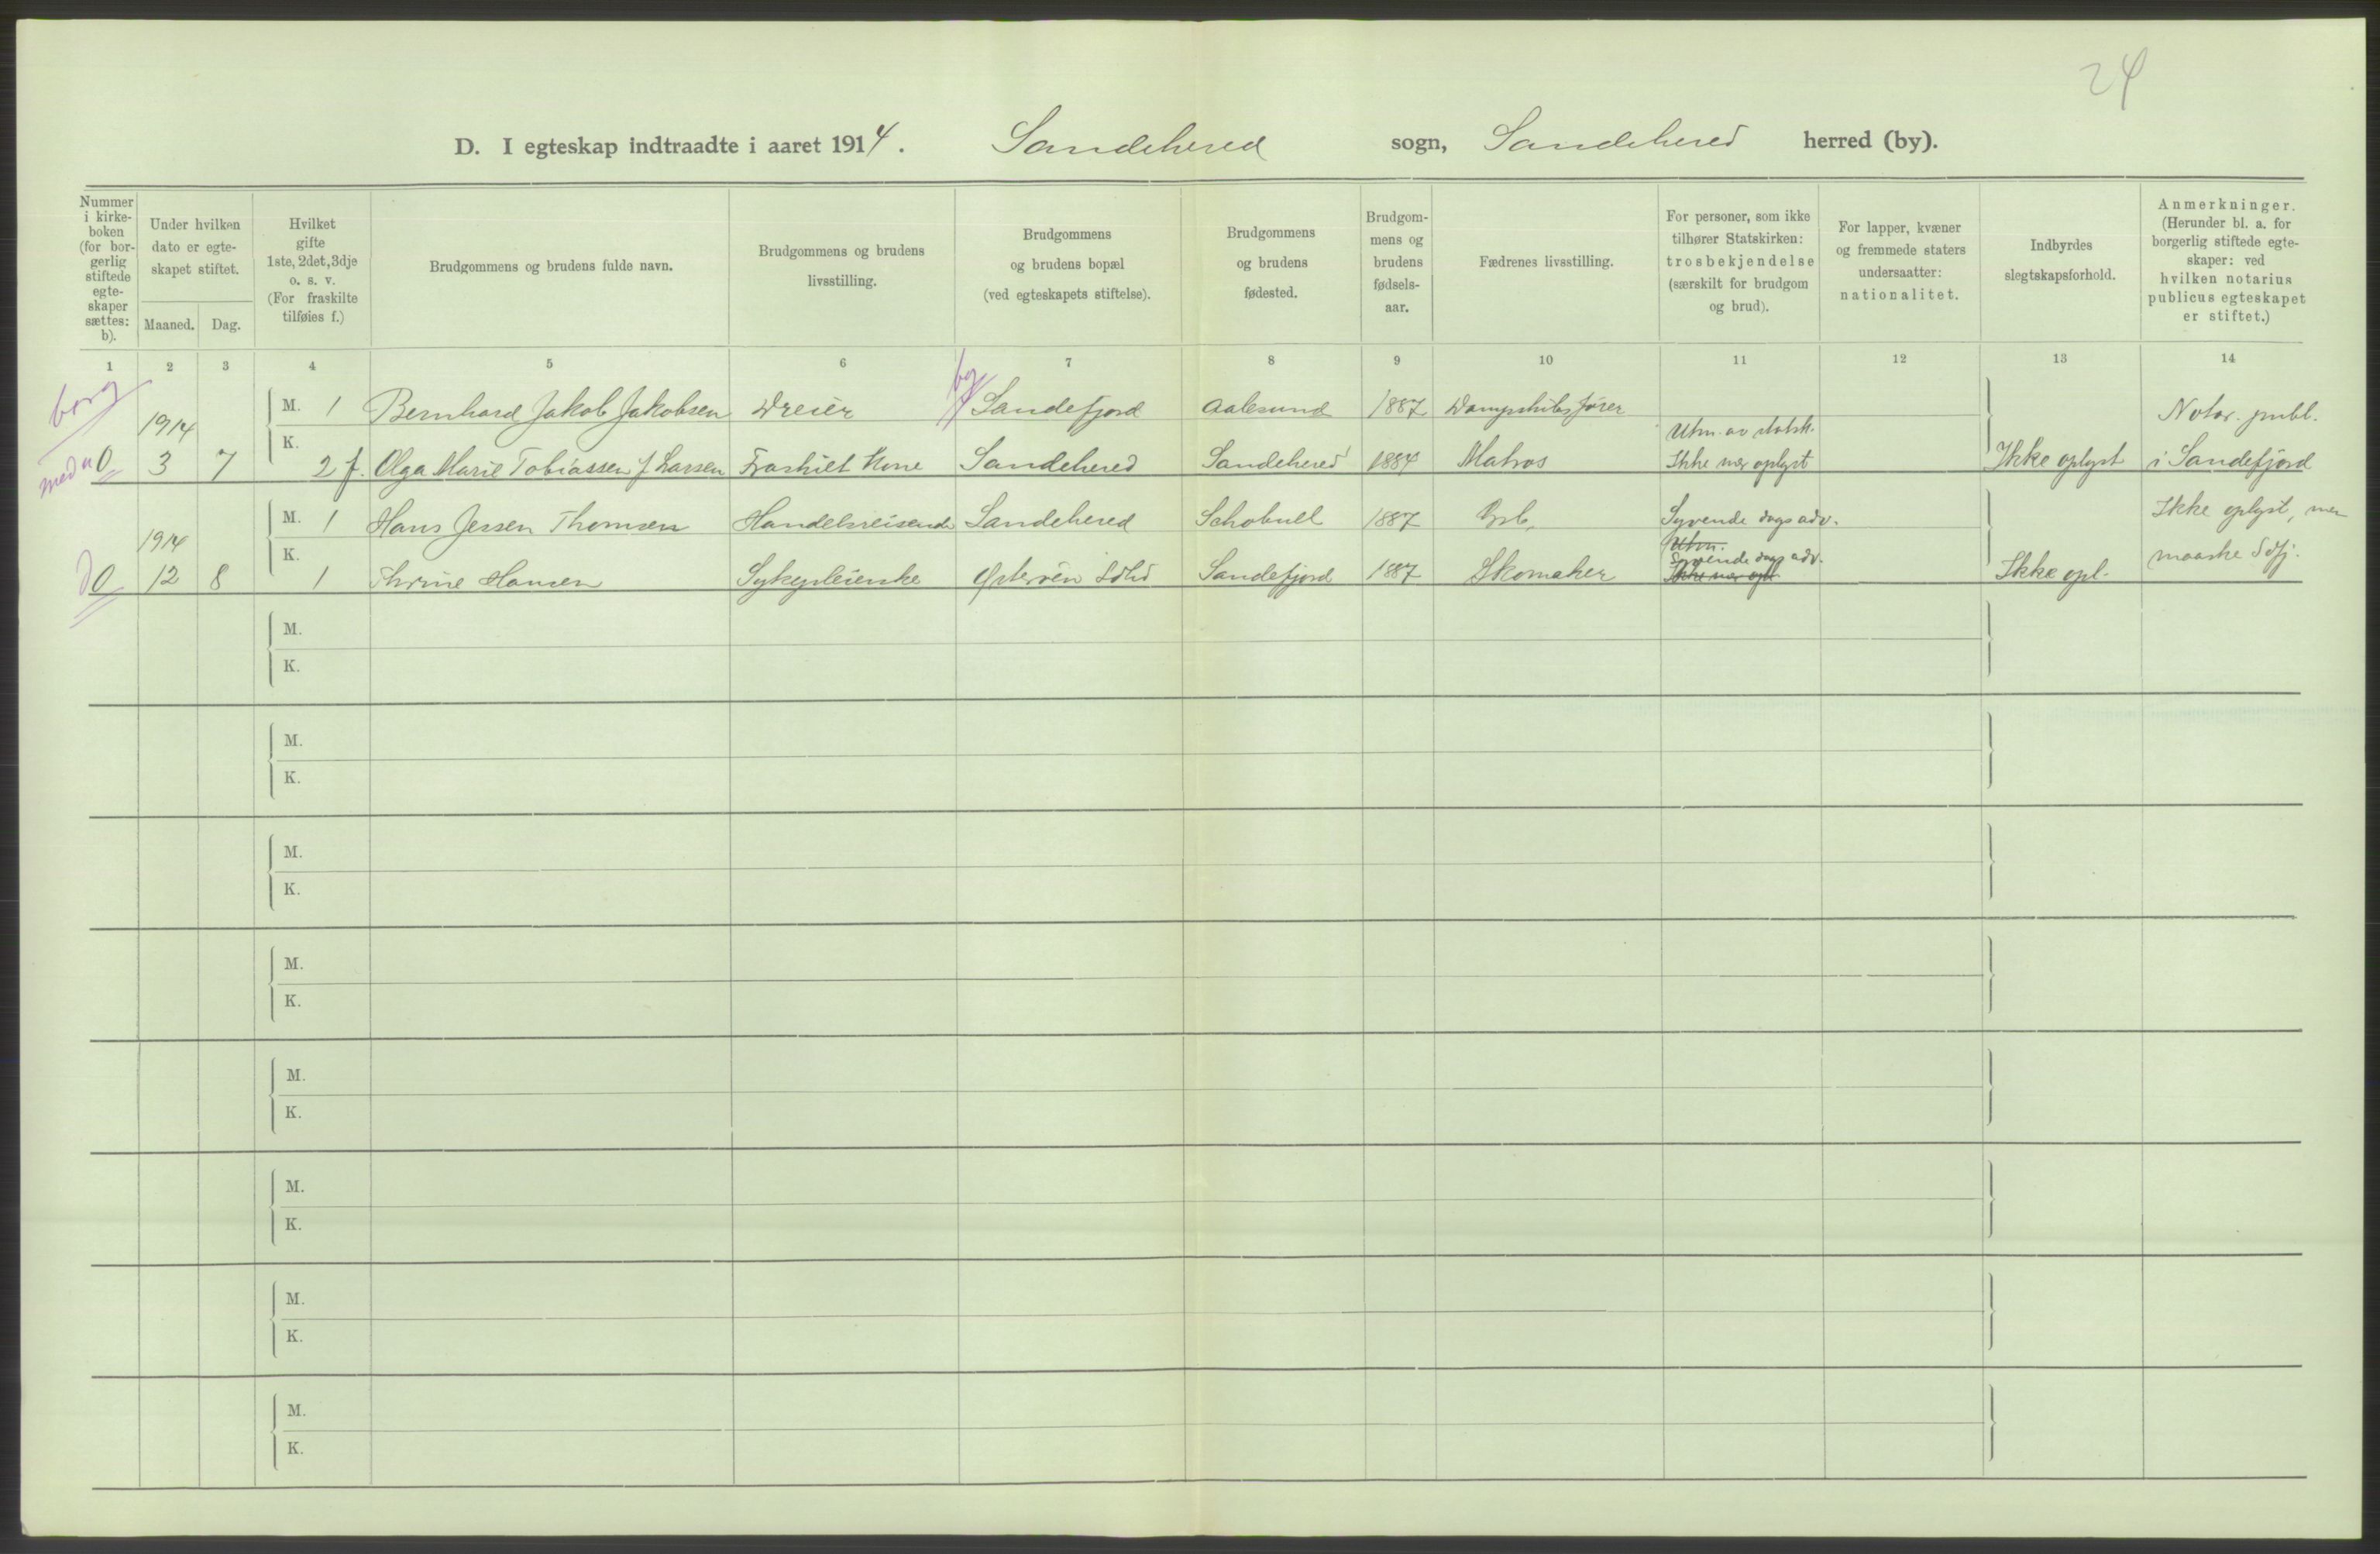 24
D. I egteskap indtraadte i aaret 1914. Sandehered sogn, Sandehered herred (by).
Nummer i kirke- boken (for bor- gerlig stiftede egte- skaper sættes: b).
Under hvilken dato er egte- skapet stiftet.
Maaned. Dag.
Hvilket gifte 1ste, 2det, 3dje o. s. v. (For fraskilte tilføies f.)
Brudgommens og brudens fulde navn.
Brudgommens og brudens livsstilling.
Brudgommens og brudens bopæl (ved egteskapets stiftelse).
Brudgommens og brudens fødested.
Brudgom- mens og brudens fødsels- aar.
Fædrenes livsstilling.
For personer, som ikke tilhører Statskirken: trosbekjendelse (særskilt for brudgom og brud).
For lapper, kvæner og fremmede staters undersaatter: nationalitet.
Indbyrdes slegtskapsforhold.
Anmerkninger. (Herunder bl. a. for borgerlig stiftede egte- skaper: ved hvilken notarius publicus egteskapet er stiftet.)
1 2 3 4 5 6 7 8 9 10 11 12 13 14
borg 1914 M. 1 Bernhard Jakob Jakobsen Dreier by Sandefjord Aalesund 1887 Dampskibsfører Notar. publ.
Utm. av statsk.
med 0 3 7 K. 2 f. Olga Marie Tobiassen f Larsen Fraskilt Kone Sandehered Sandehered 1884 Matros Ikke nær oplyst Ikke oplyst i Sandefjord
1914 M. 1 Hans Jessen Thomsen Handelsreisende Sandehered Schobuel 1887 Grb. Syvende dags adv. Ikke oplyst, men
Utm.
do 12 8 K. 1 Thrine Hansen Sykepleierske Østerøen Sdhd Sandefjord 1887 Skomaker Syvende dags adv. Ikke nær opl Ikke opl. maaske Sdfj.
M.
K.
M.
K.
M.
K.
M.
K.
M.
K.
M.
K.
M.
K.
M.
K.